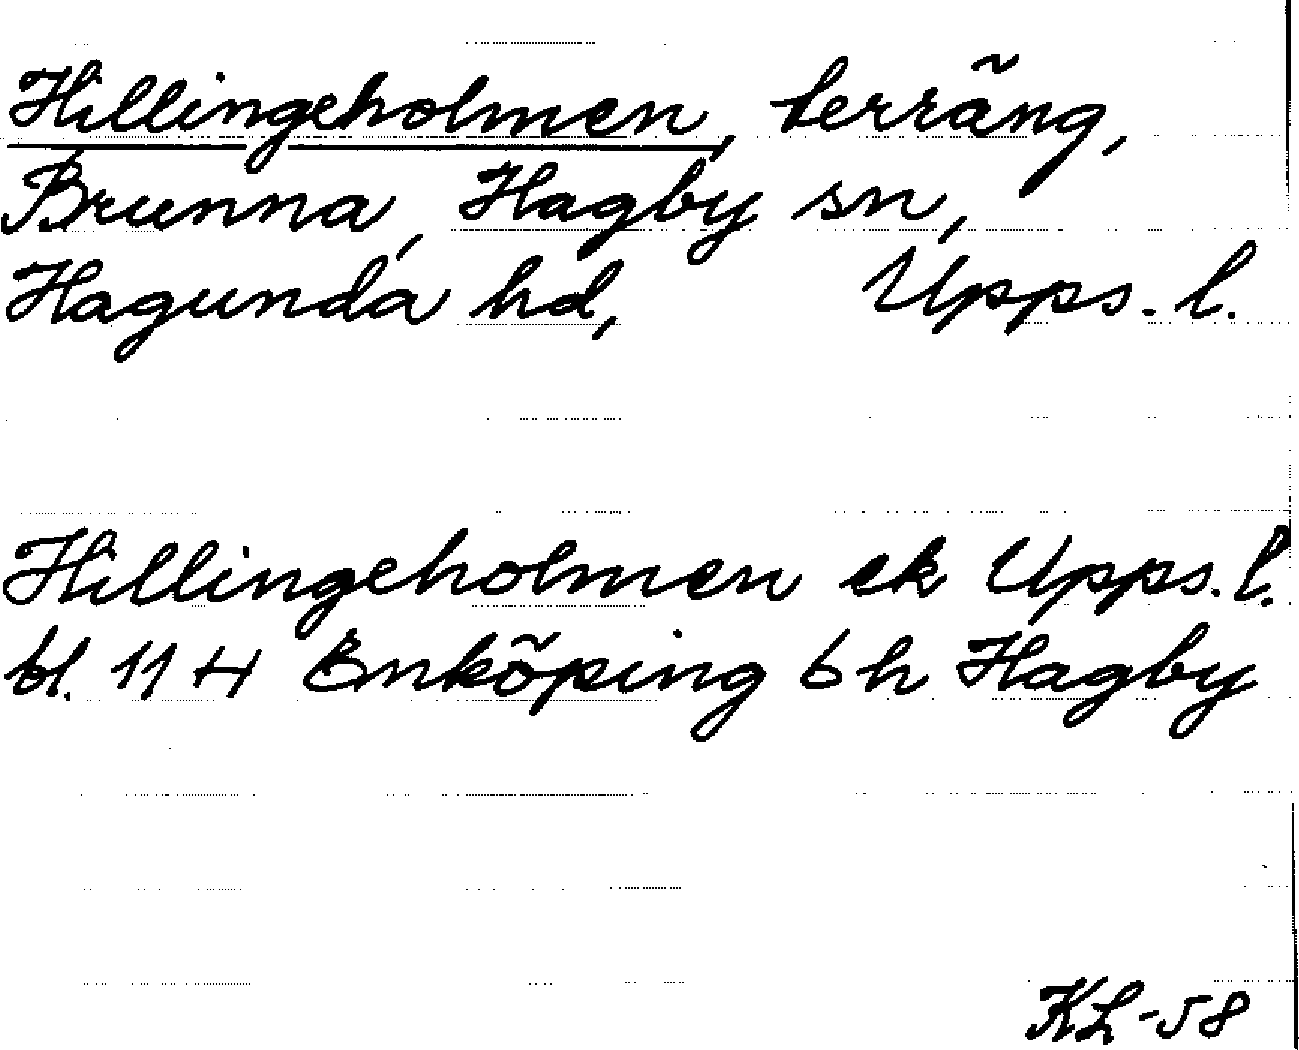 Hillingeholmen, terräng,
Brunna, Hagby sn,
Hagunda hd, Upps. l.
Hillingeholmen ek Upps. l.
bl. 11 H Enköping 6 h Hagby
KL-58